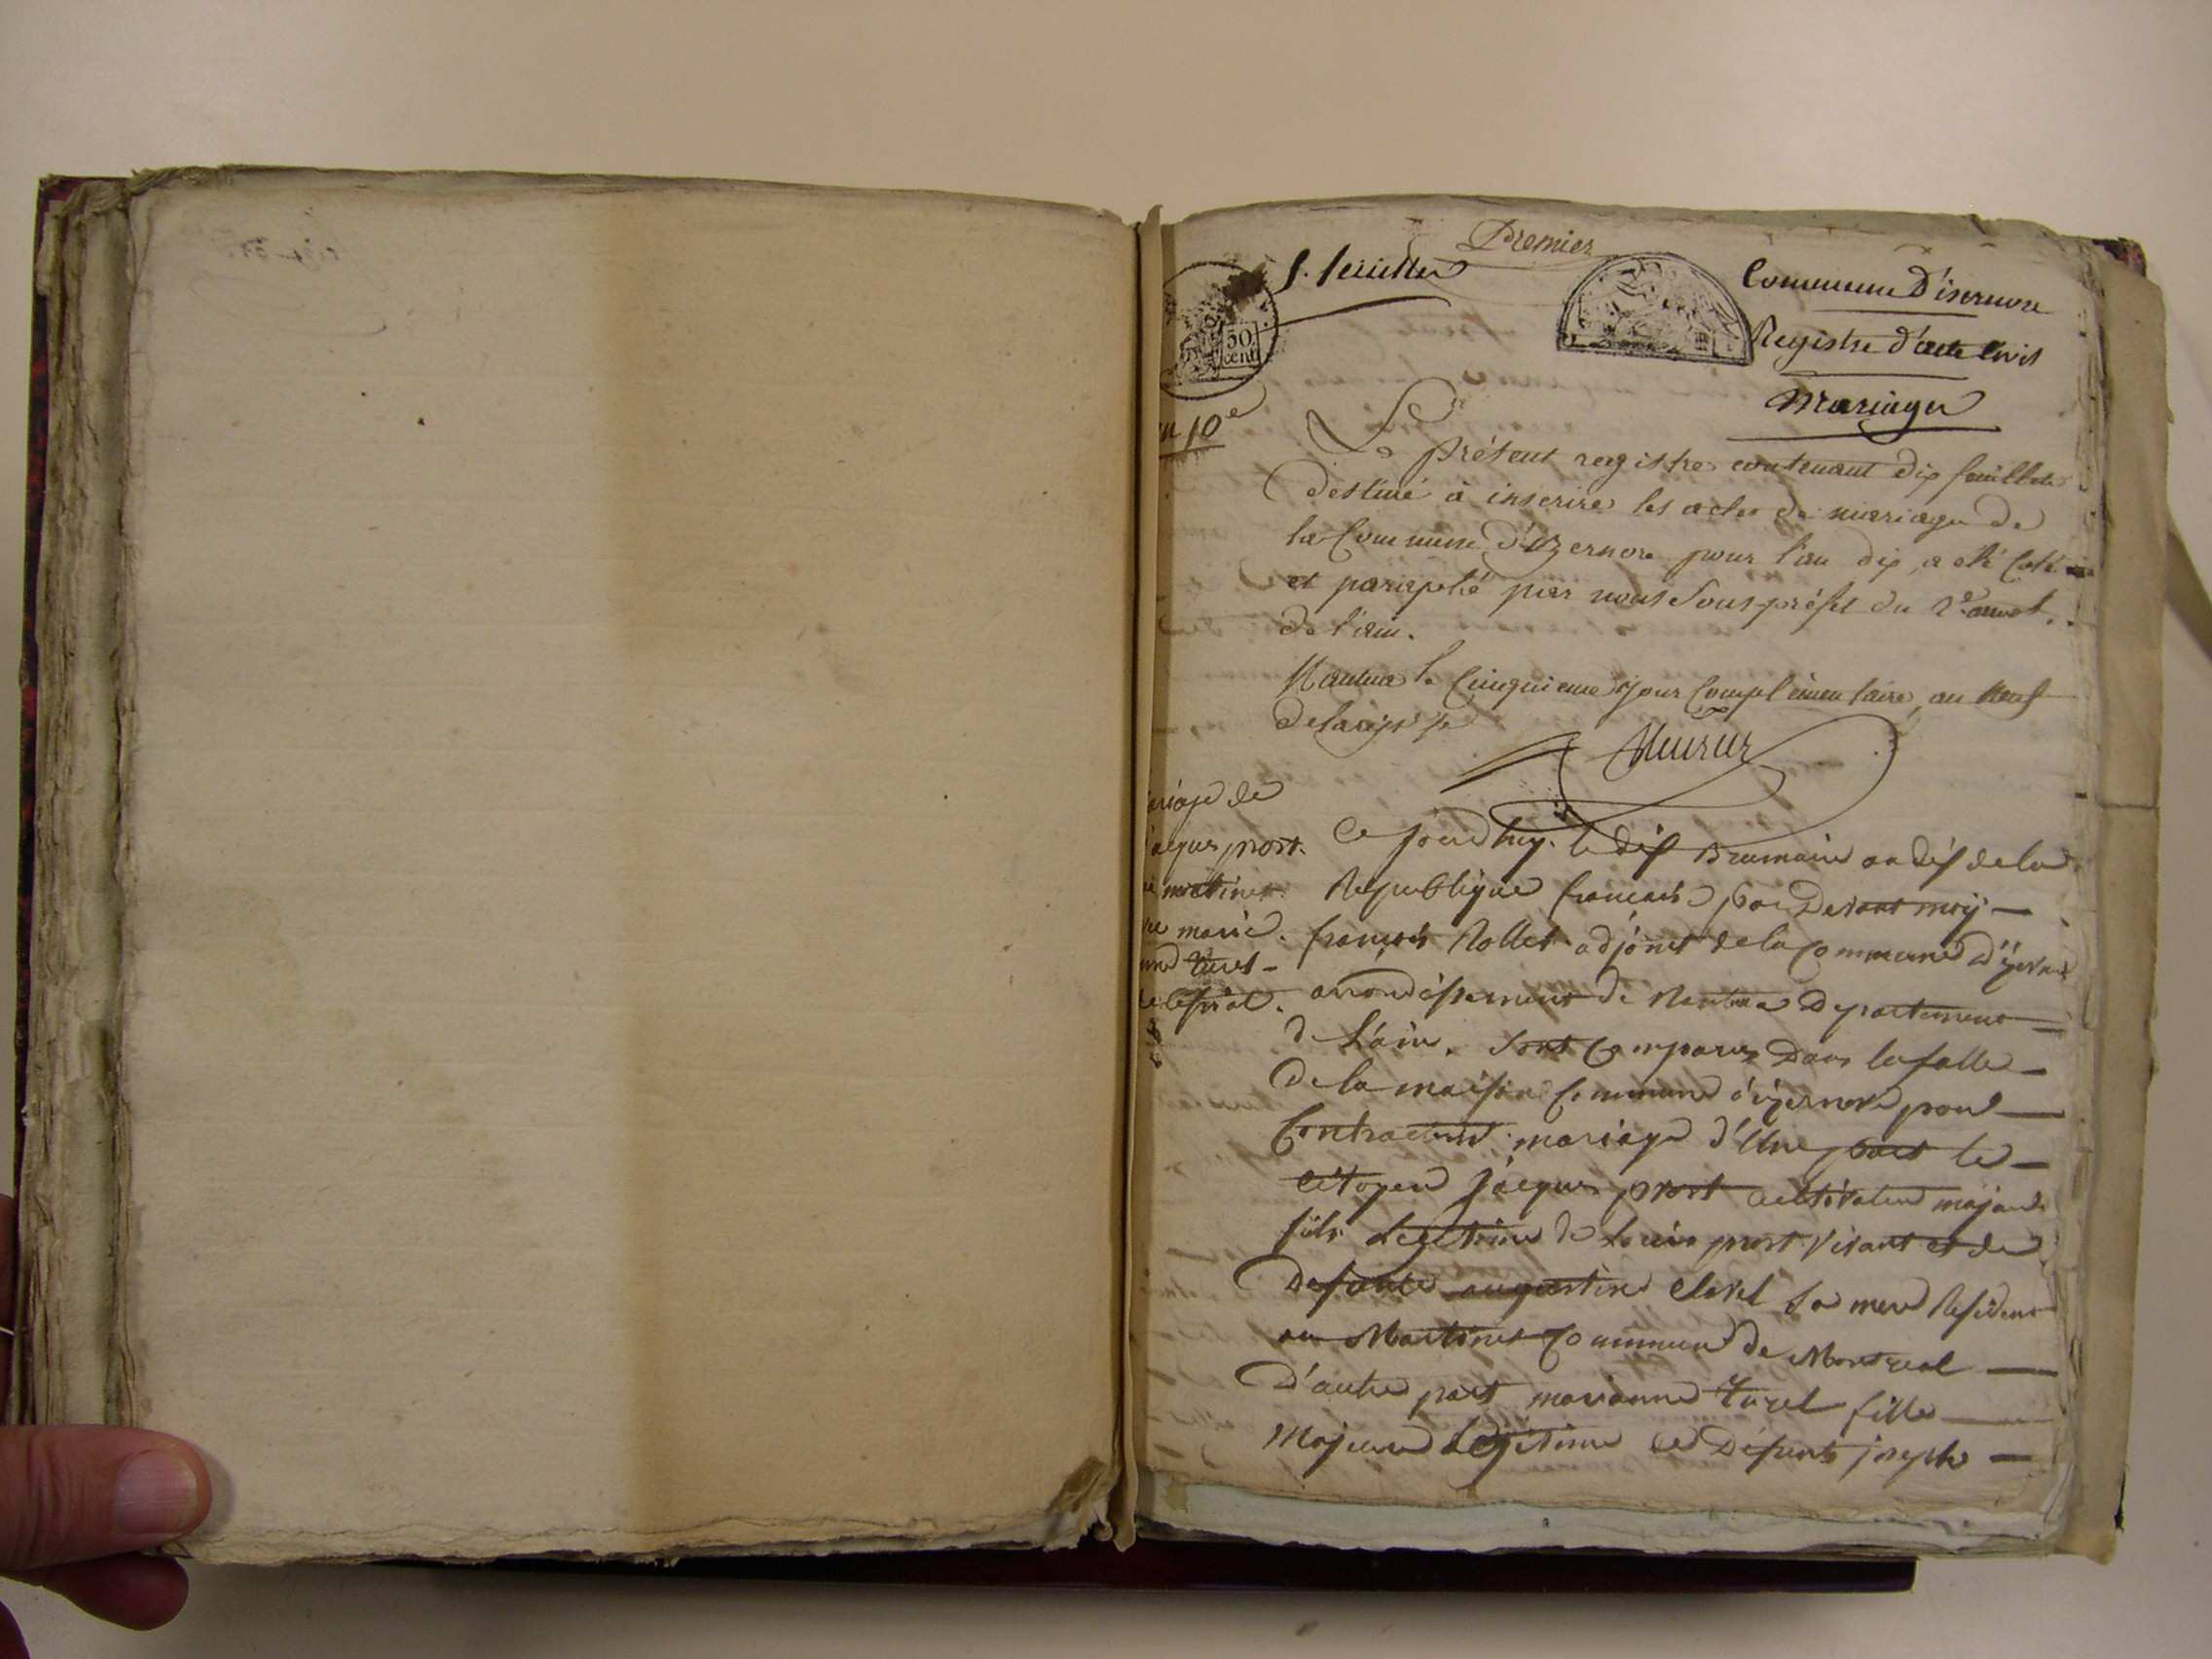 Premier
f. feuillet
50
cent
Commune D'isernore
Registre d'acte Civil
Mariages
an 10e
Le Présent registre contenant dix feuillets
destiné à inscrire les actes de mariage de
la Commune d'Izernore pour l'an dix, a été Coté
et paraphé par nous Sous-préfet du 2e arrondt.
de l'ain.
Nantua le Cinquieme jour Complémentaire, an neuf
de la rép
ariage de
acques prost.
martinet.
marie.
turel
Ce jourdhuy. le dix Brumaire an dix de la
Republique francaise par Devant moy
françois Rollet adjoint de la Commune d'izernore
arrondissement de Nantua Departement
de L'ain. Sont Comparus Dans la salle
De la maison Commune d'izernore pour
Contracter mariage d'Une part le
citoyen jacques prost cultivateur majeur
fils Legitime de Louis prost vivant et de
Defunte augustine Clavel Sa mere Residant
au Martinet Commune de Montreal
D'autre part marianne turel fille
Majeure Legitime de Defunts joseph